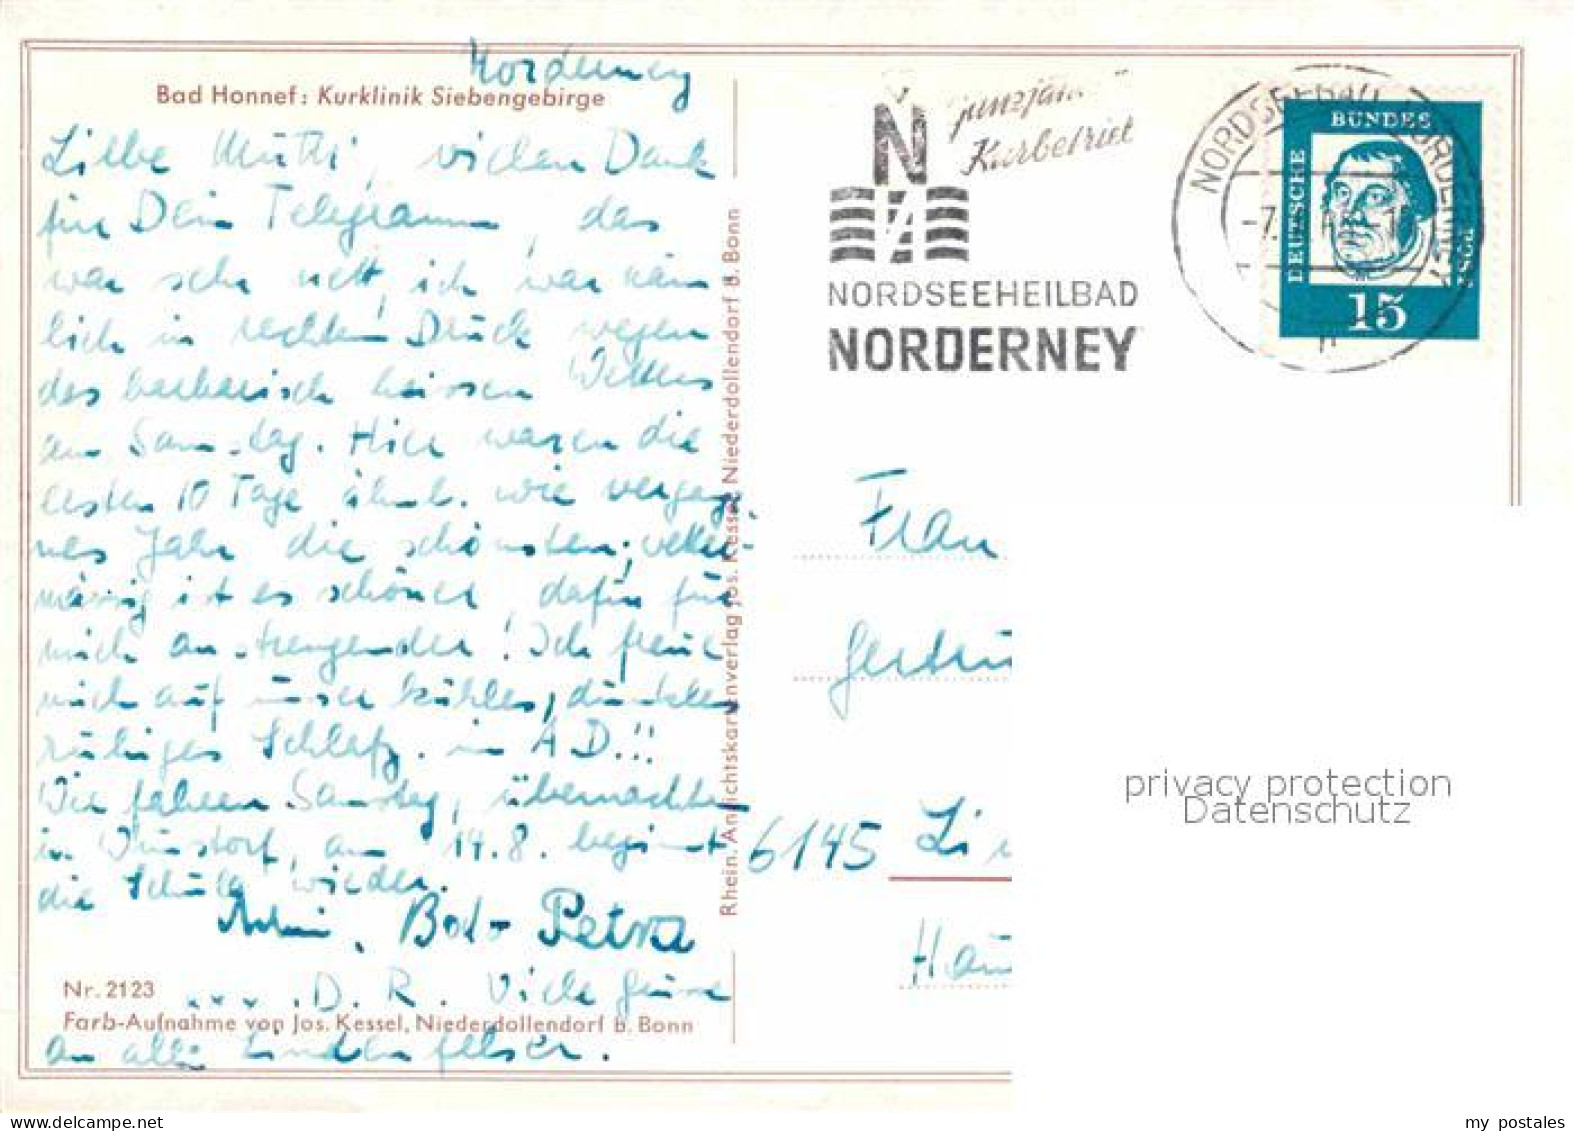 Norderney
Bad Honnef: Kurklinik Siebengebirge
Liebe Mutti, vielen Dank
für Dein Telegramm, das
war sehr nett, ich war näm
lich in rechten Druck wegen
des barbarisch heissen Wetters
am Samstag. Hier waren die
ersten 10 Tage ähnl. wie vergange
nes Jahr die schönsten;
mässig ist es schöner, dafür für
mich anstrengender! Ich freue
mich auf unser kühles, dunkles
ruhiges Schlafz. in A D.!!
Wir fahren Samstag, übernachten
in Wunstorf, am 14.8. beginnt
die Schule wieder.
Bodo Petra
.... D. R. Viele Grüsse
an alle Lindenfelser.
Nr. 2123
Farb-Aufnahme von Jos. Kessel, Niederdollendorf b. Bonn
Rhein. Ansichtskartenverlag Jos. Kessel, Niederdollendorf b. Bonn
N
Kurbetrieb
NORDSEEHEILBAD
NORDERNEY
NORDSEEBAD NORDERNEY
DEUTSCHE
BUNDES
POST
15
Frau
Gertru
6145 Lin
Hau
privacy protection
Datenschutz
my postales